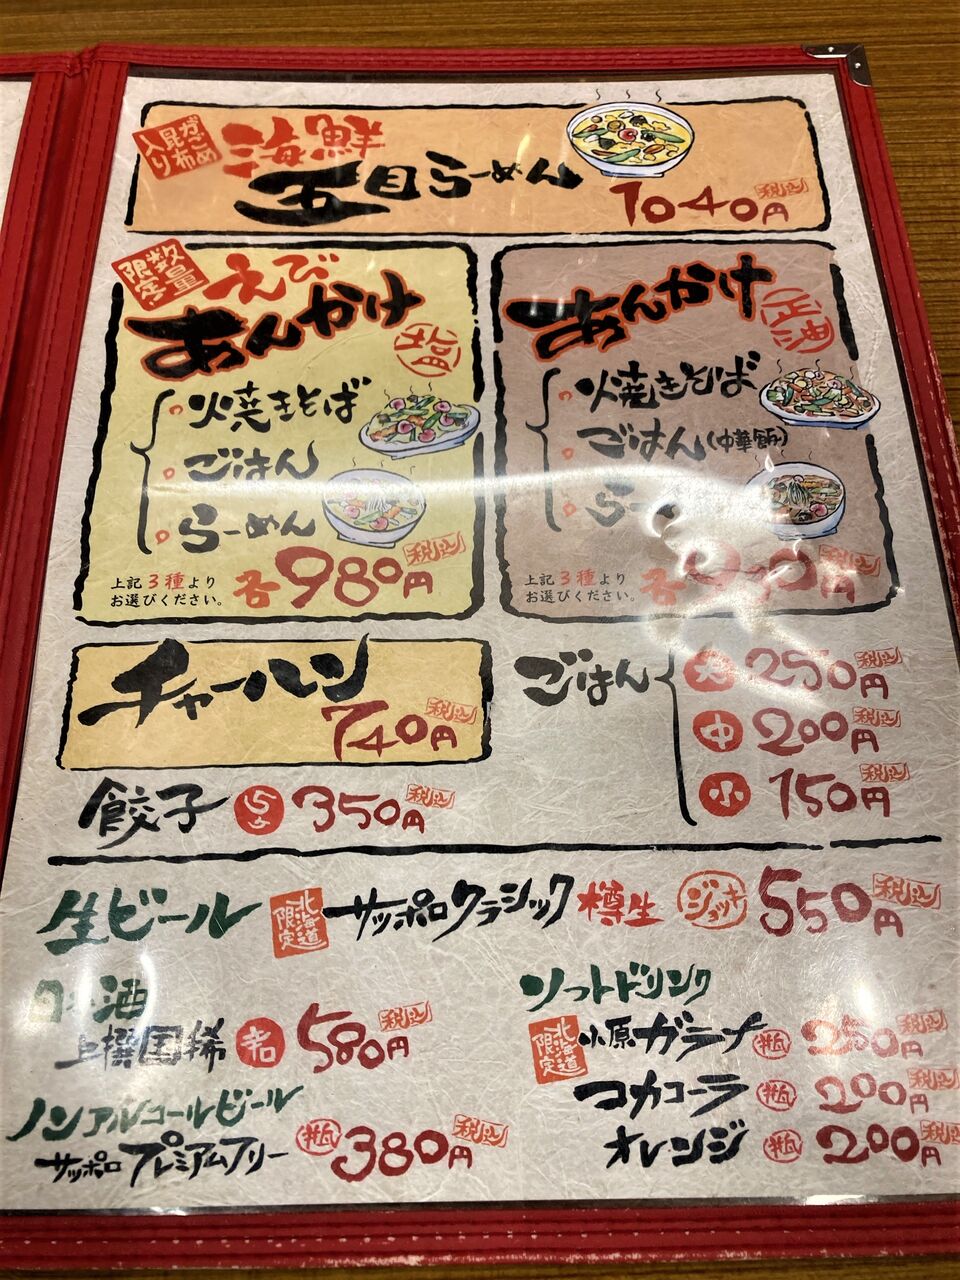 がごめ昆布入り
海鮮
五目らーめん
1040円 税込
数量限定
えび
あんかけ 塩
焼きそば
ごはん
らーめん
上記3種より
お選びください。
各980円 税込
あんかけ 正油
焼きそば
ごはん(中華飯)
らー
上記3種より
お選びください。
各 円 税込
チャーハン
740円 税込
ごはん
大 250円 税込
中 200円 税込
小 150円 税込
餃子 5ヶ 350円 税込
生ビール 北海道限定 サッポロクラシック 樽生 ジョッキ 550円 税込
日本酒
上撰国稀 辛口 580円 税込
ノンアルコールビール
サッポロプレミアムフリー 瓶 380円 税込
ソフトドリンク
北海道限定 小原ガラナ 瓶 250円 税込
コカコーラ 瓶 200円 税込
オレンジ 瓶 200円 税込